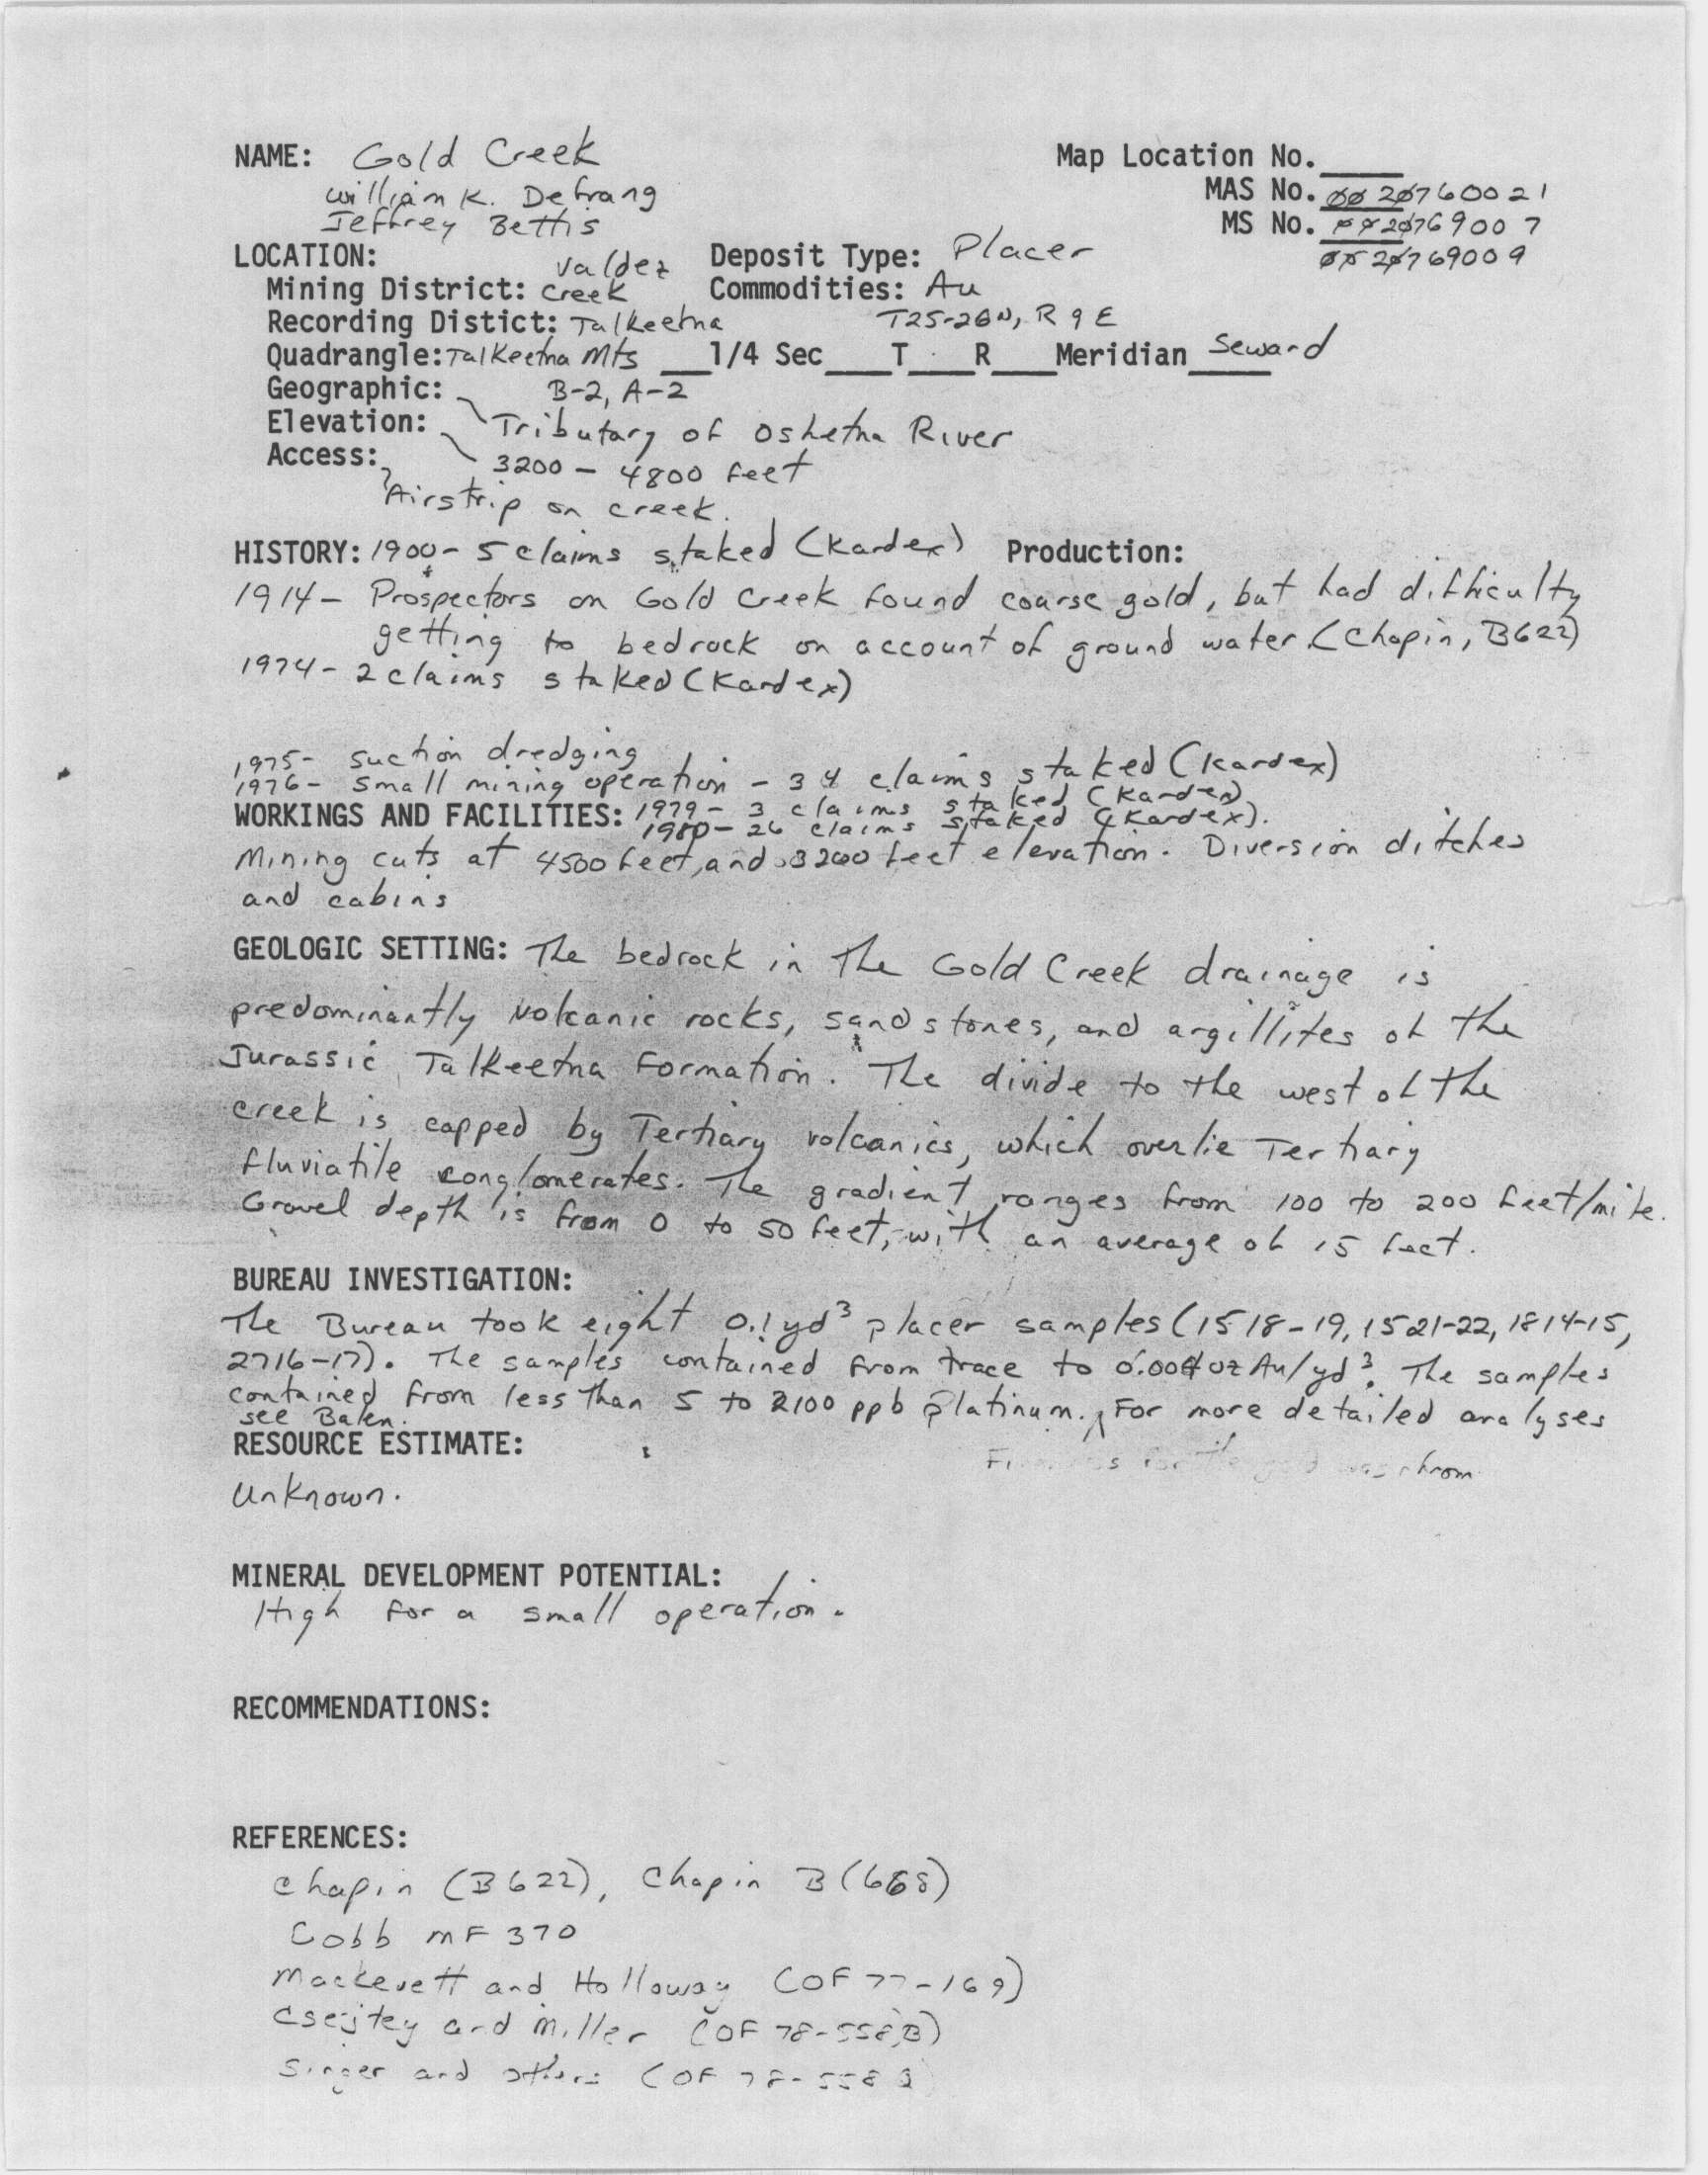 NAME: Gold Creek Map Location No.
William K. Defrang MAS No. 0020760021
Jeffrey Bettis MS No. 0020769007
LOCATION: Deposit Type: Placer 0020769009
Mining District: Valdez Creek Commodities: Au
Recording Distict: Talkeetna T25-26N, R 9 E
Quadrangle: Talkeetna Mts 1/4 Sec T R Meridian Seward
Geographic: B-2, A-2
Elevation: Tributary of Oshetna River
Access: 3200 - 4800 feet
Airstrip on creek.
HISTORY: 1900 - 5 claims staked (Kardex) Production:
1914 - Prospectors on Gold Creek found coarse gold, but had difficulty
getting to bedrock on account of ground water. (Chapin, B622)
1974 - 2 claims staked (Kardex)
1975 - suction dredging
1976 - small mining operation - 34 claims staked (Kardex)
WORKINGS AND FACILITIES: 1979 - 3 claims staked (Kardex)
1980 - 26 claims staked (Kardex).
Mining cuts at 4500 feet, and 3200 feet elevation. Diversion ditches
and cabins
GEOLOGIC SETTING: The bedrock in the Gold Creek drainage is
predominantly volcanic rocks, sandstones, and argillites of the
Jurassic Talkeetna Formation. The divide to the west of the
creek is capped by Tertiary volcanics, which overlie Tertiary
fluviatile conglomerates. The gradient ranges from 100 to 200 feet/mile.
Gravel depth is from 0 to 50 feet, with an average of 15 feet.
BUREAU INVESTIGATION:
The Bureau took eight 0.1 yd³ placer samples (1518-19, 1521-22, 1814-15,
2716-17). The samples contained from trace to 0.004 oz Au/yd³. The samples
contained from less than 5 to 2100 ppb platinum. For more detailed analyses
see Balen.
RESOURCE ESTIMATE:
from
Unknown.
MINERAL DEVELOPMENT POTENTIAL:
High for a small operation.
RECOMMENDATIONS:
REFERENCES:
Chapin (B622), Chapin B(668)
Cobb MF 370
Mackevett and Holloway (OF 77-169)
Csejtey and Miller (OF 78-558B)
Singer and others (OF 78-558